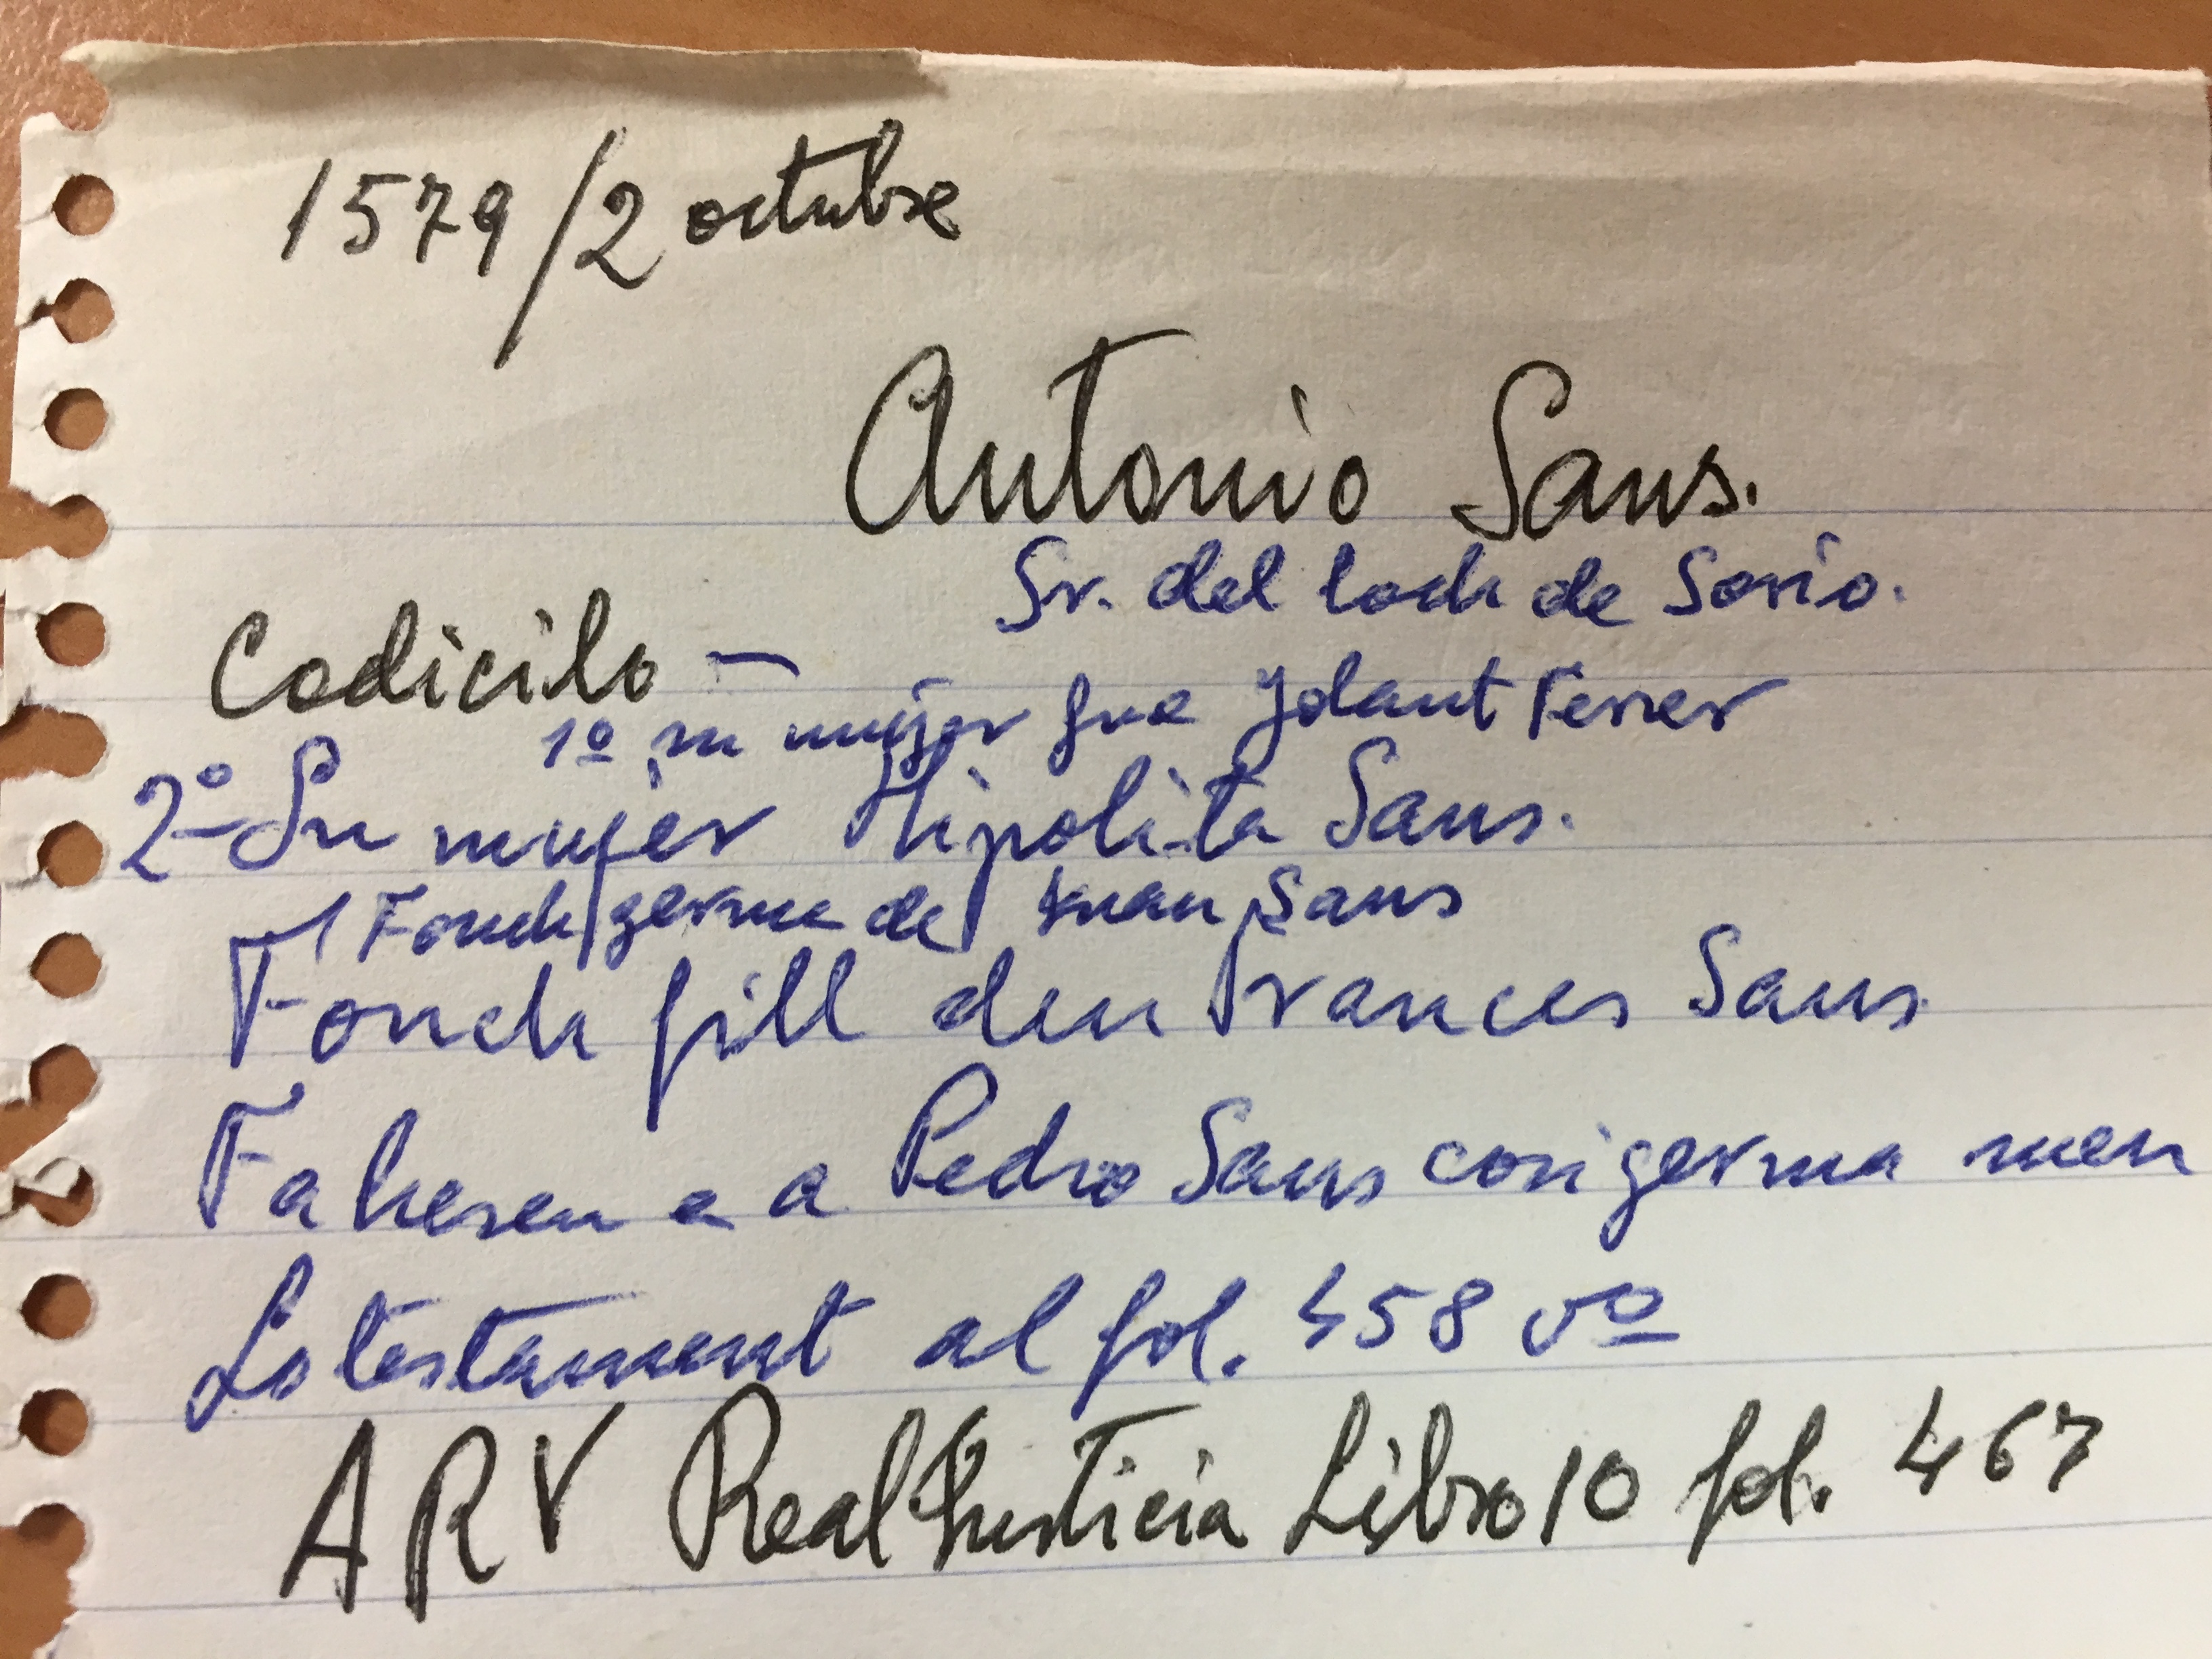 1579/2 octubre
Antonio Sans.
Sr. del loch de Sorio.
Codicilo —
1º su mujer fue Yolant Ferrer
2º Su mujer Hipolita Sans.
Fonch germa de Juan Sans
Fonch fill den Frances Sans
Fa hereu a a Pedro Sans cosigerma meu
Lo testament al fol. 458 vº
ARV Real Justicia Libro 10 fol. 467